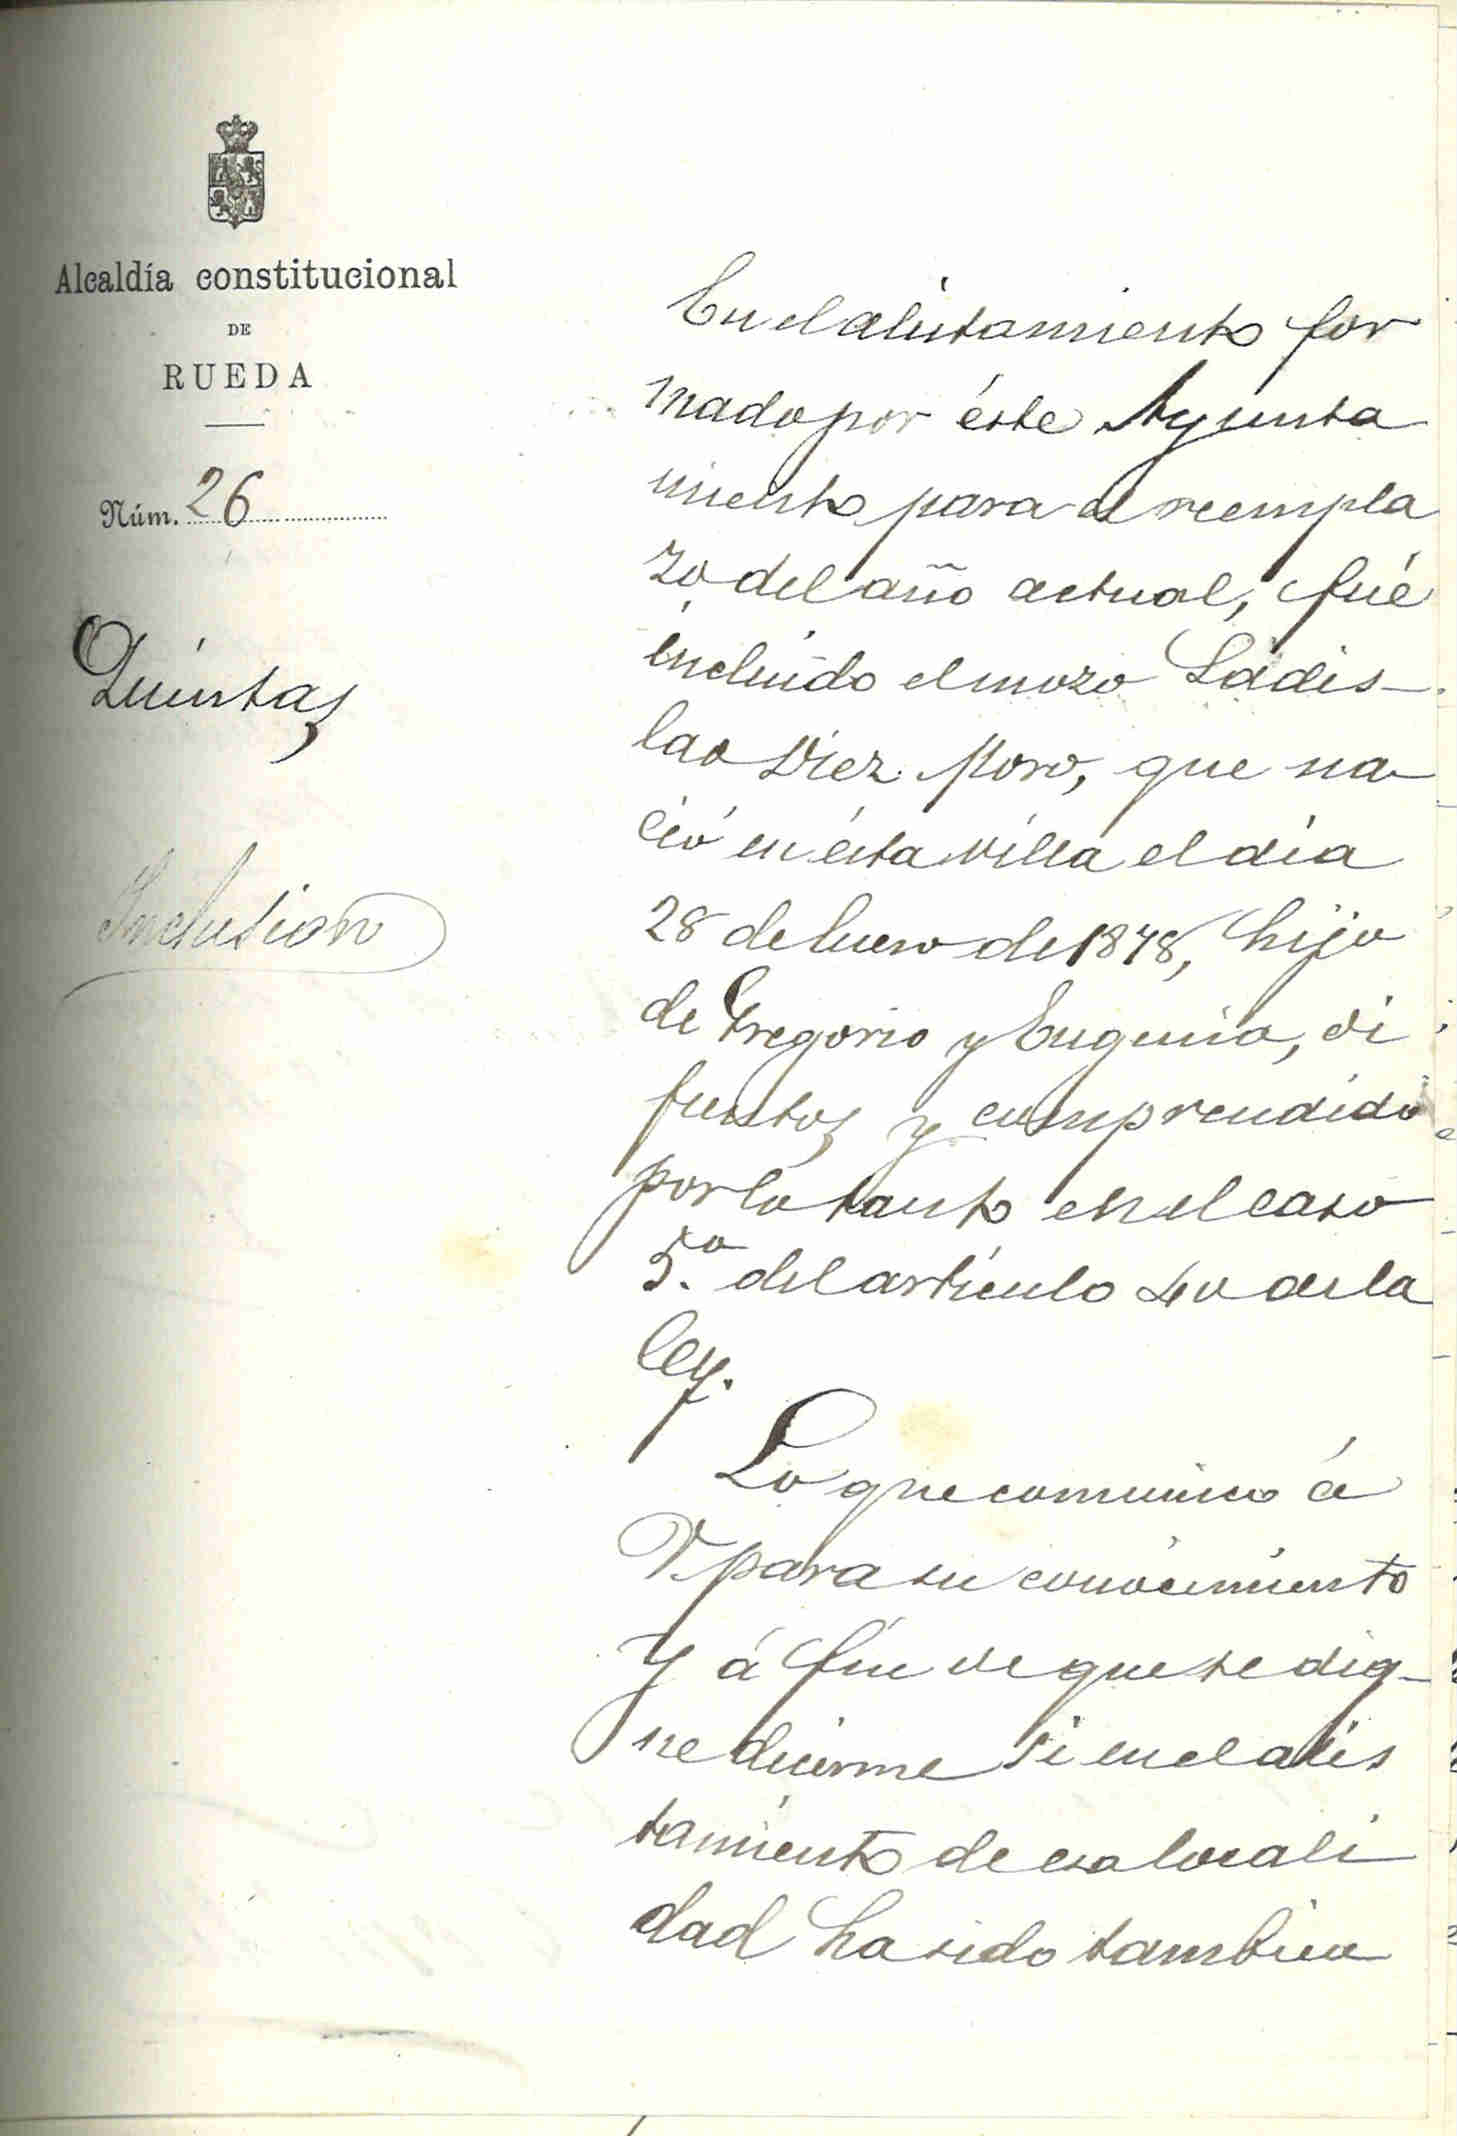 Alcaldía constitucional
DE
RUEDA
Núm. 26
Quintas
Inclusion
En el alistamiento for
mado por éste Ayunta
miento para el reempla
zo del año actual, fué
incluído el mozo Ladis-
lao Diez Moro, que na-
ció en ésta villa el día
28 de Enero de 1878, hijo
de Gregorio y Eugenia, di
funtos y comprendido
por lo tanto en el caso
5.º del artículo 40 de la
ley.
Lo que comunico á
V. para su conocimiento
y á fin de que se dig-
ne decirme si en el alis
tamiento de esa locali
dad ha sido tambien